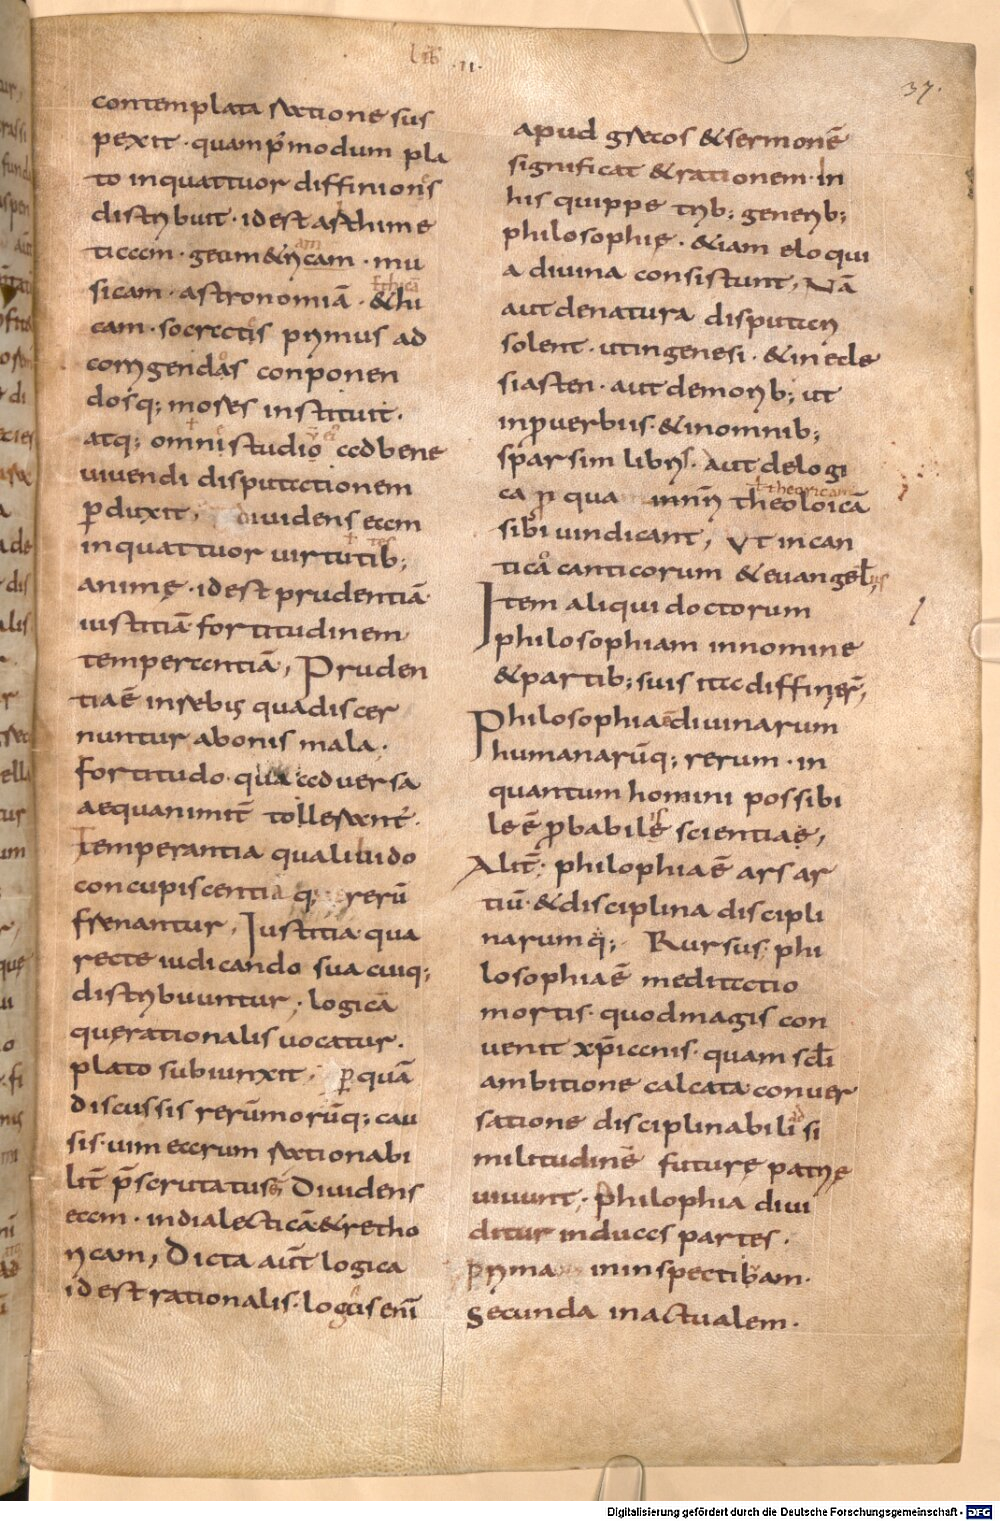 lib ·II·
37·
contemplatatractione sus
pexit · quam p̄modum pla
to inquattuor diffinions
distribuit · idest arithime
ticam · geometricam · mu
am
sicam · astronomiā · & hi
ethicā
cam · socratis primus ad
corrigendas conponen
dosq; moses instituit ·
atq; omni studio ad bene
uiuendi disputationem
ꝑduxit, diuidens eam
inquattuor uirtutib;
tes
animę · idest prudentiā
iustitiā fortitudinem
temperantiā, Pruden
tiaē inrebus quadiscer
nuntur abonis mala ·
fortitudo · qua aduersa
aequanimit̄ tollerant ·
Temperantia qualibido
concupiscentia q; rerū
frenantur, Iustitia qua
recte iudicando sua cuiq;
distribuuntur; logicā
quęrationalis uocatur ·
plato subiunxit; ꝑ quā
discussis rerūmorūq; cau
sis · uim earum rationabi
lit̄ p̄scrutatus Diuidens
eam · indialecticā & retho
ricam, Dicta aūt logica
idest rationalis · logos enī
apud grecos & sermonē
significat & rationem · in
his quippe trib; generib;
philosophię · & iam eloqui
a diuina consistunt, Nā
aut denatura disputari
solent · ut ingenesi · & in ecle
siasten · aut demorib; ut
inp̄uerbiis · & inomnib;
sparsim libris · aut delogi
ca ꝓ qua innr̄i theoloicā
theoricam
sibi uindicant, Ut incan
tica canticorum & euangel;
Item aliqui doctorum
philosophiam innomine
& partib; suis ita diffinȝer̄;
Philosophia diuinarum
humanarūq; rerum · in
quantum homini possibi
le ē ꝓbabile scientiae,
Alit̄; philophiaē ars ar
tiū · & disciplina discipli
narumq; Rursus phi
losophiaē meditatio
mortis · quodmagis con
uenit xp̄ianis · quam scl̄i
ambitione calcata conuer
satione disciplinabili si
militudinē futurę patrię
uiuunt · Philophia diui
ditur induas partes ·
prima ininspectibam ·
Secunda inactualem ·
Digitalisierung gefördert durch die Deutsche Forschungsgemeinschaft - DFG